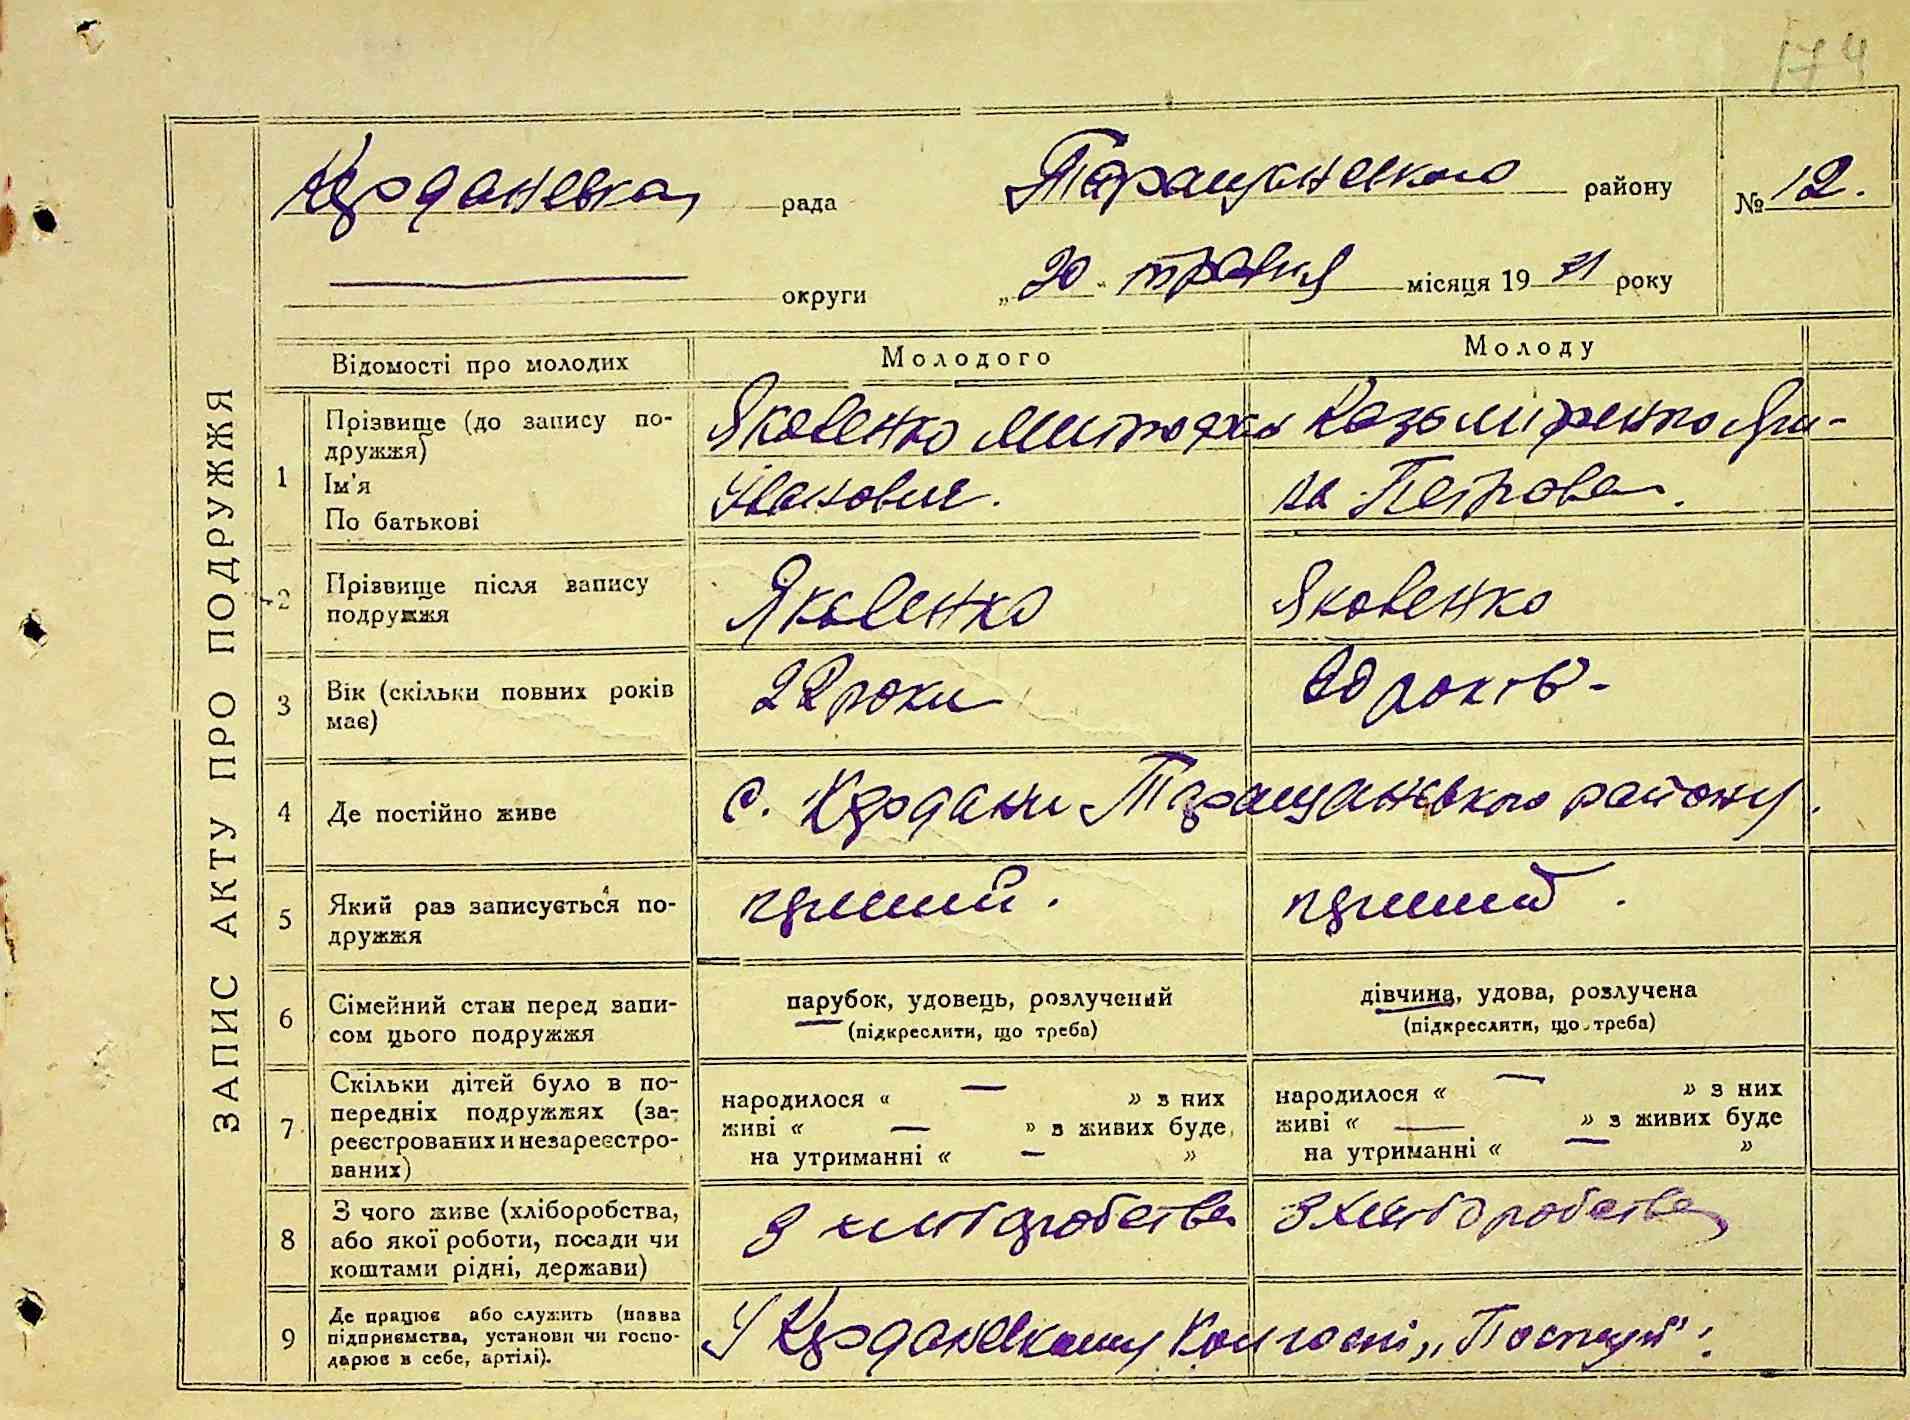 174
ЗАПИС АКТУ ПРО ПОДРУЖЖЯ
Кердановка рада Таращанського району № 12.
округи „20" травня місяця 1931 року
Відомості про молодих Молодого Молоду
1 Прізвище (до запису по-
дружжя)
Ім'я
По батькові
Яковенко Митрофан
Іванович.
Казьміренко Яри-
на Петровна.
2 Прізвище після запису
подружжя
Яковенко Яковенко
3 Вік (скільки повних років
має)
22 роки 20 років -
4 Де постійно живе с. Кердани Таращанського району.
5 Який раз записується по-
дружжя
перший. перший.
6 Сімейний стан перед запи-
сом цього подружжя
парубок, удовець, розлучений
(підкреслити, що треба)
дівчина, удова, розлучена
(підкреслити, що треба)
7 Скільки дітей було в по-
передніх подружжях (за-
реєстрованих и незареєстро-
ваних)
народилося « — » з них
живі « — » з живих буде
на утриманні « — »
народилося « — » з них
живі « — » з живих буде
на утриманні « — »
8 З чого живе (хліборобства,
або якої роботи, посади чи
коштами рідні, держави)
З хліборобства З хліборобства
9 Де працює або служить (назва
підприємства, установи чи госпо-
дарює в себе, артілі).
У Керданівському Колгоспі